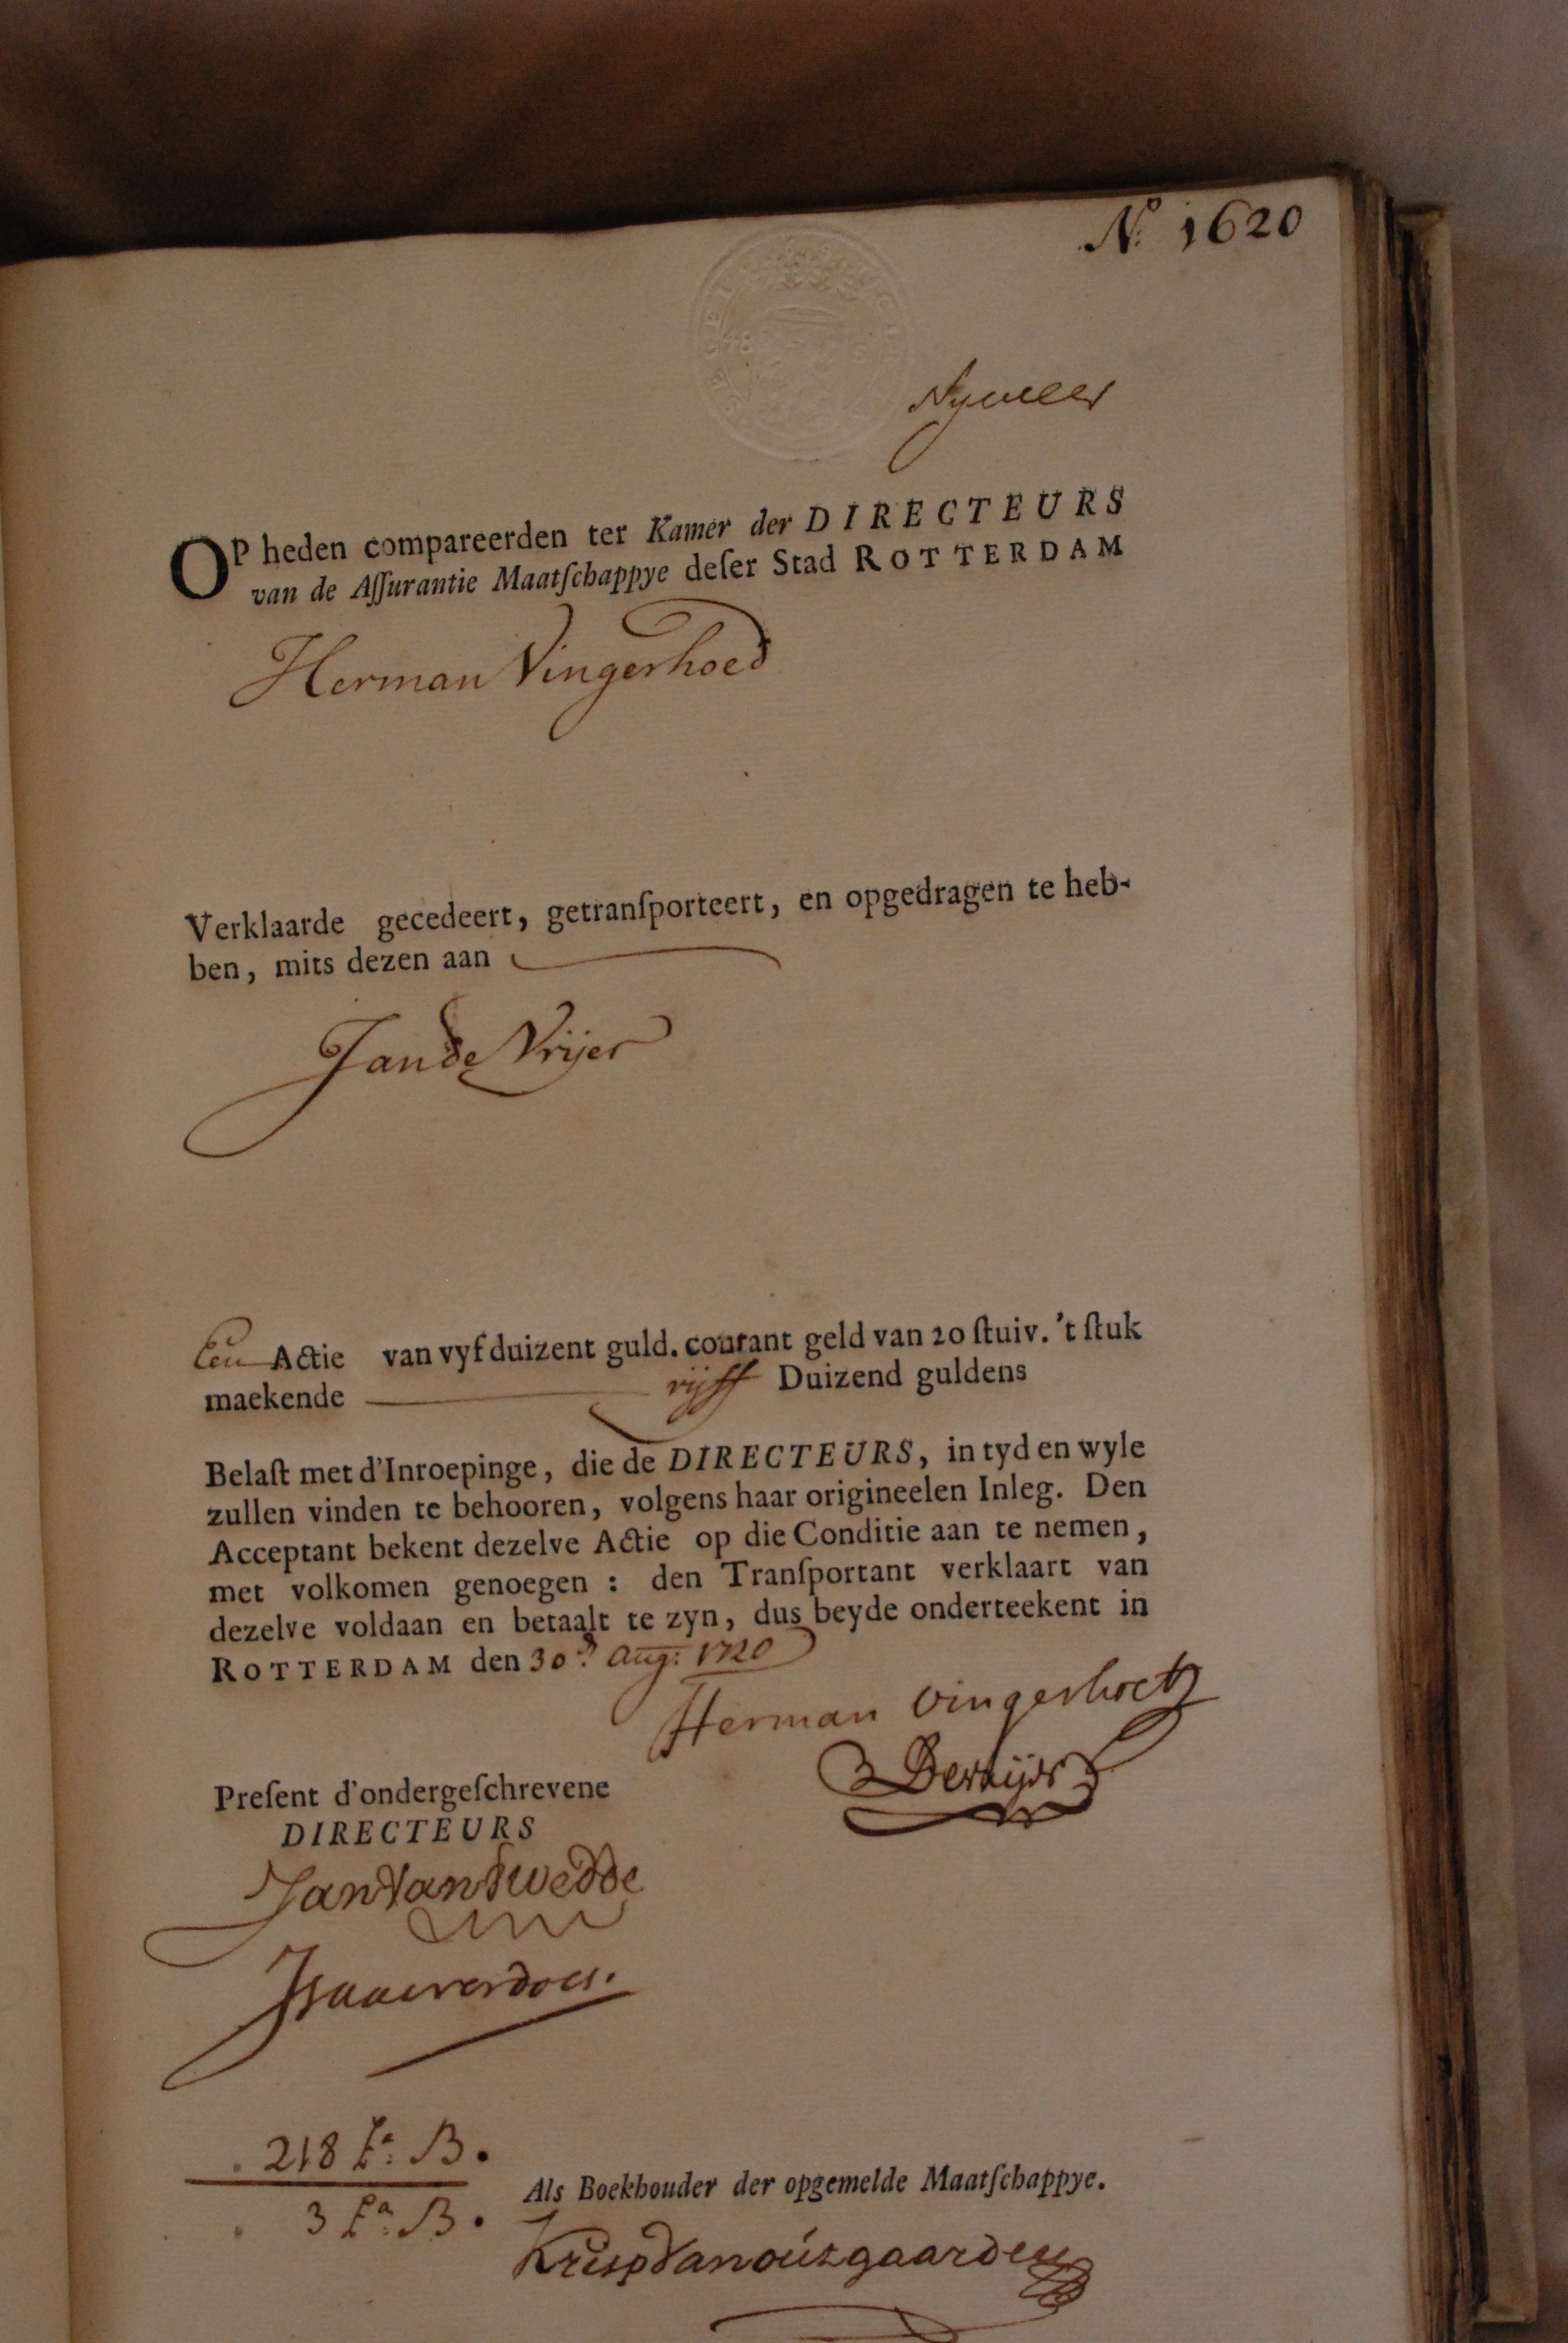 Nº 1620
OP heden compareerden ter Kamer der DIRECTEURS
van de Aſſurantie Maatſchappye deſer Stad ROTTERDAM
Herman Vingerhoed
Verklaarde gecedeert, getranſporteert, en opgedragen te heb-
ben, mits dezen aan
Jan de Vrijer
Een Actie van vyf duizent guld. courant geld van 20 ſtuiv. 't ſtuk
maekende vijff Duizend guldens
Belaſt met d'Inroepinge, die de DIRECTEURS, in tyd en wyle
zullen vinden te behooren, volgens haar origineelen Inleg. Den
Acceptant bekent dezelve Actie op die Conditie aan te nemen,
met volkomen genoegen : den Tranſportant verklaart van
dezelve voldaan en betaalt te zyn, dus beyde onderteekent in
ROTTERDAM den 30: Aug: 1720
Herman Vingerhoet
Preſent d'ondergeſchrevene
DIRECTEURS
Jan Van Twedde
218 B.
3 B.
Als Boekhouder der opgemelde Maatſchappye.